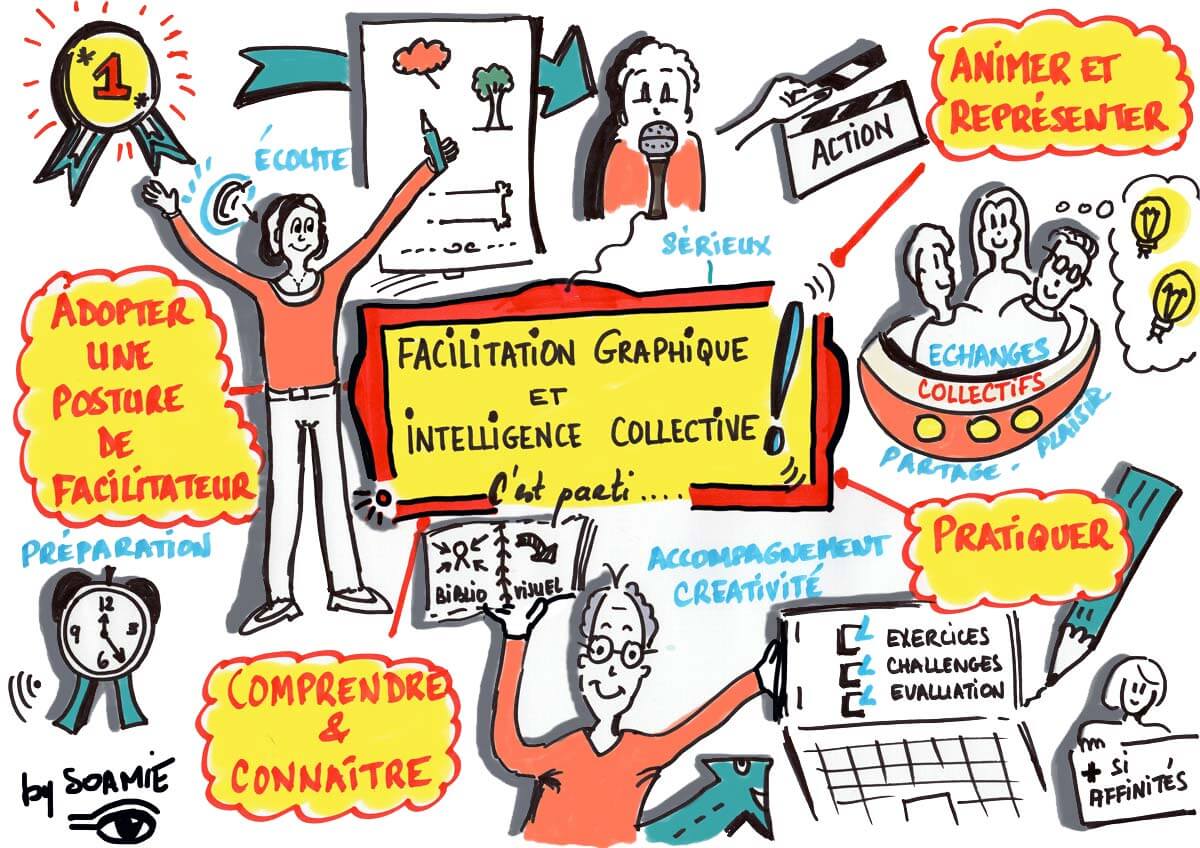 1
ÉCOUTE
SÉRIEUX
ACTION
ANIMER ET
REPRÉSENTER
ADOPTER
UNE
POSTURE
DE
FACILITATEUR
FACILITATION GRAPHIQUE
ET
INTELLIGENCE COLLECTIVE !
C'est parti....
ECHANGES
COLLECTIFS
PARTAGE - PLAISIR
PRÉPARATION
12
9
3
6
BIBLIO
VISUEL
ACCOMPAGNEMENT
CREATIVITÉ
PRATIQUER
EXERCICES
CHALLENGES
EVALUATION
COMPRENDRE
&
CONNAÎTRE
+ SI
AFFINITÉS
by SOAMIE